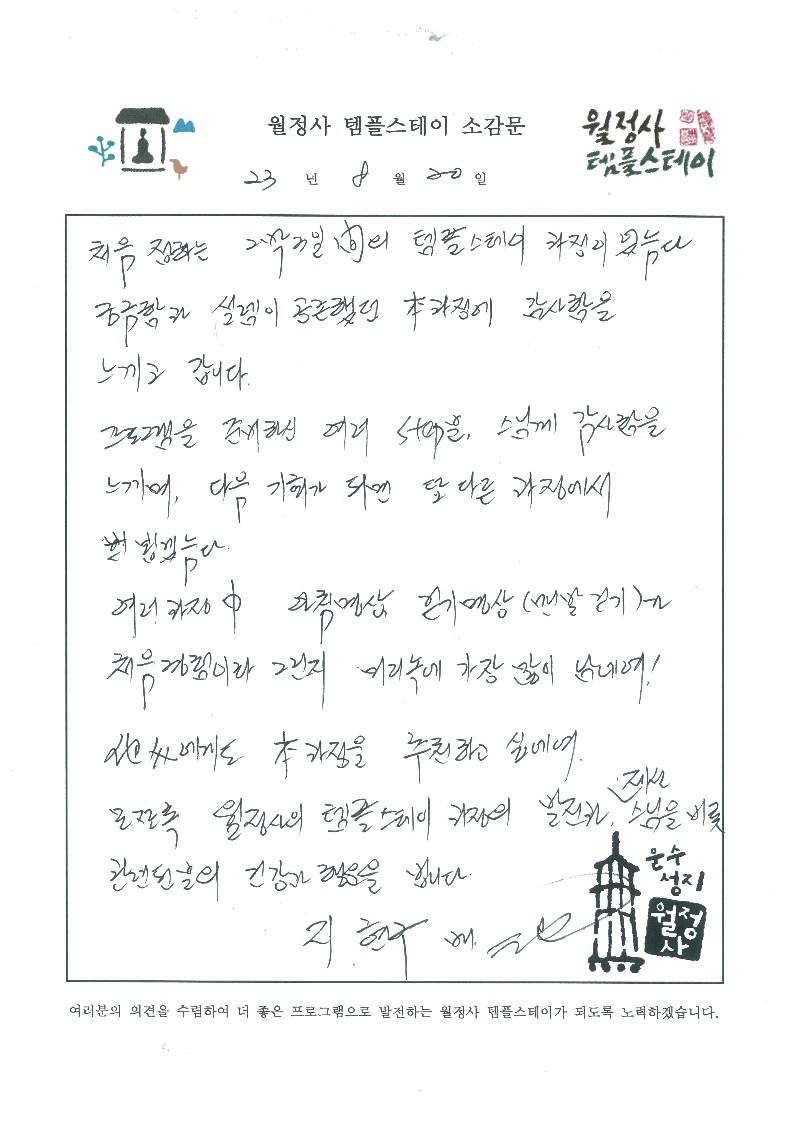 월정사 템플스테이 소감문
월정사
템플스테이
23 년 8 월 20 일
처음 접하는 2박3일 間의 템플스테이 과정이 였습니다
궁금함과 설렘이 공존했던 本 과정에 감사함을
느끼고 갑니다.
프로그램을 준비하신 여러 staff분, 스님께 감사함을
느끼며, 다음 기회가 되면 또 다른 과정에서
뵙겠습니다.
여러 과정 中 아침명상, 걷기명상(맨발 걷기)가
처음 경험이라 그런지 머리속에 가장 많이 남네여!
他人에게도 本 과정을 추천하고 싶네여.
모쪼록 월정사의 템플스테이 과정의 발전과, 스님을 비롯
관련된 분의 건강과 평온을 빕니다.
지 현구 배.
문수
성지
월정
사
여러분의 의견을 수렴하여 더 좋은 프로그램으로 발전하는 월정사 템플스테이가 되도록 노력하겠습니다.